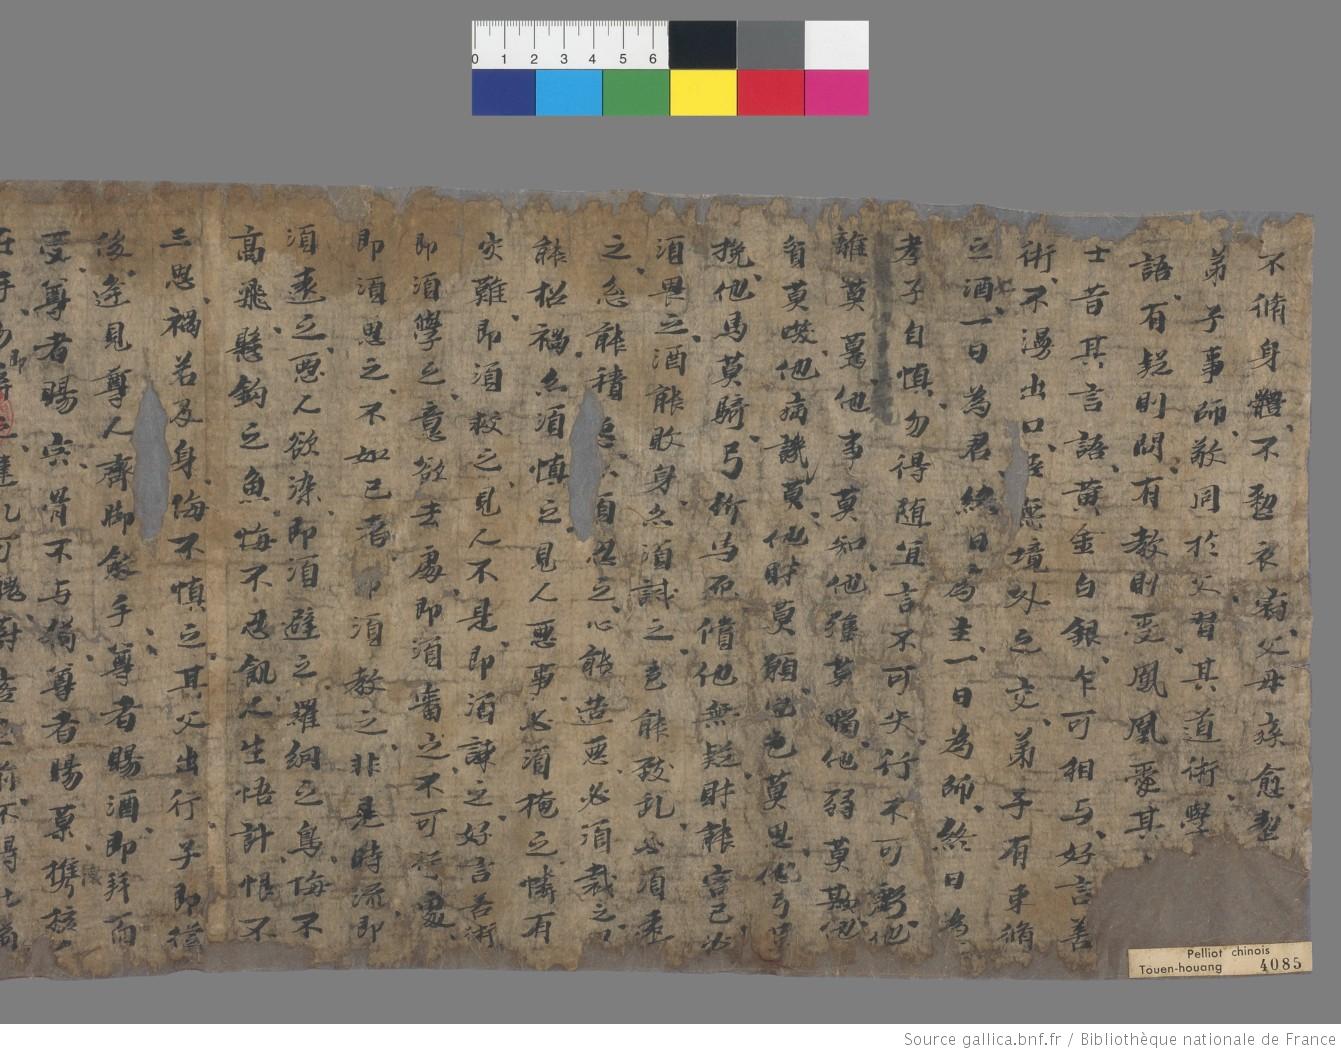 0 1 2 3 4 5 6
不脩身體不整衣裳父母疾愈整
弟子事師敬同於父習其道術學
語有疑則問有教則受鳳凰愛其
士昔其言語黄金白銀乍可相与好言善
術不漫出口臣無境外之交弟子有束脩
之酒一日為君終日為主一日為師終日為
孝子自慎勿得随宜言不可失行不可虧他
離莫驀他事莫知他強莫觸他弱莫欺他
貧莫
他病譏莫他財莫願他色莫思他弓
挽他馬莫騎弓折马死償他無疑財能害己必
須畏之酒能敗身必須誡之色能致乱必須遠
之忿能積惡必須忍之心能造惡必須裁之口
能招禍必須慎之見人惡事必須掩之憐有
災難即須救之見人不是即須諫之好言若術
即須學之意欲去處即須審之不可
即須思之不如己者即須教之非是時流即
須遠之惡人欲染即須避之羅網之鳥悔不
高飛懸鈎之魚悔不忍飢人生悟計恨不
三思禍若及身悔不慎之其父出行子即從
後逢見尊人齊脚斂手尊者賜酒即拜而
受尊者賜宍骨不与猧尊者賜菓懐核
Pelliot chinois
Touen-houang 4085
Source gallica.bnf.fr / Bibliothèque nationale de France